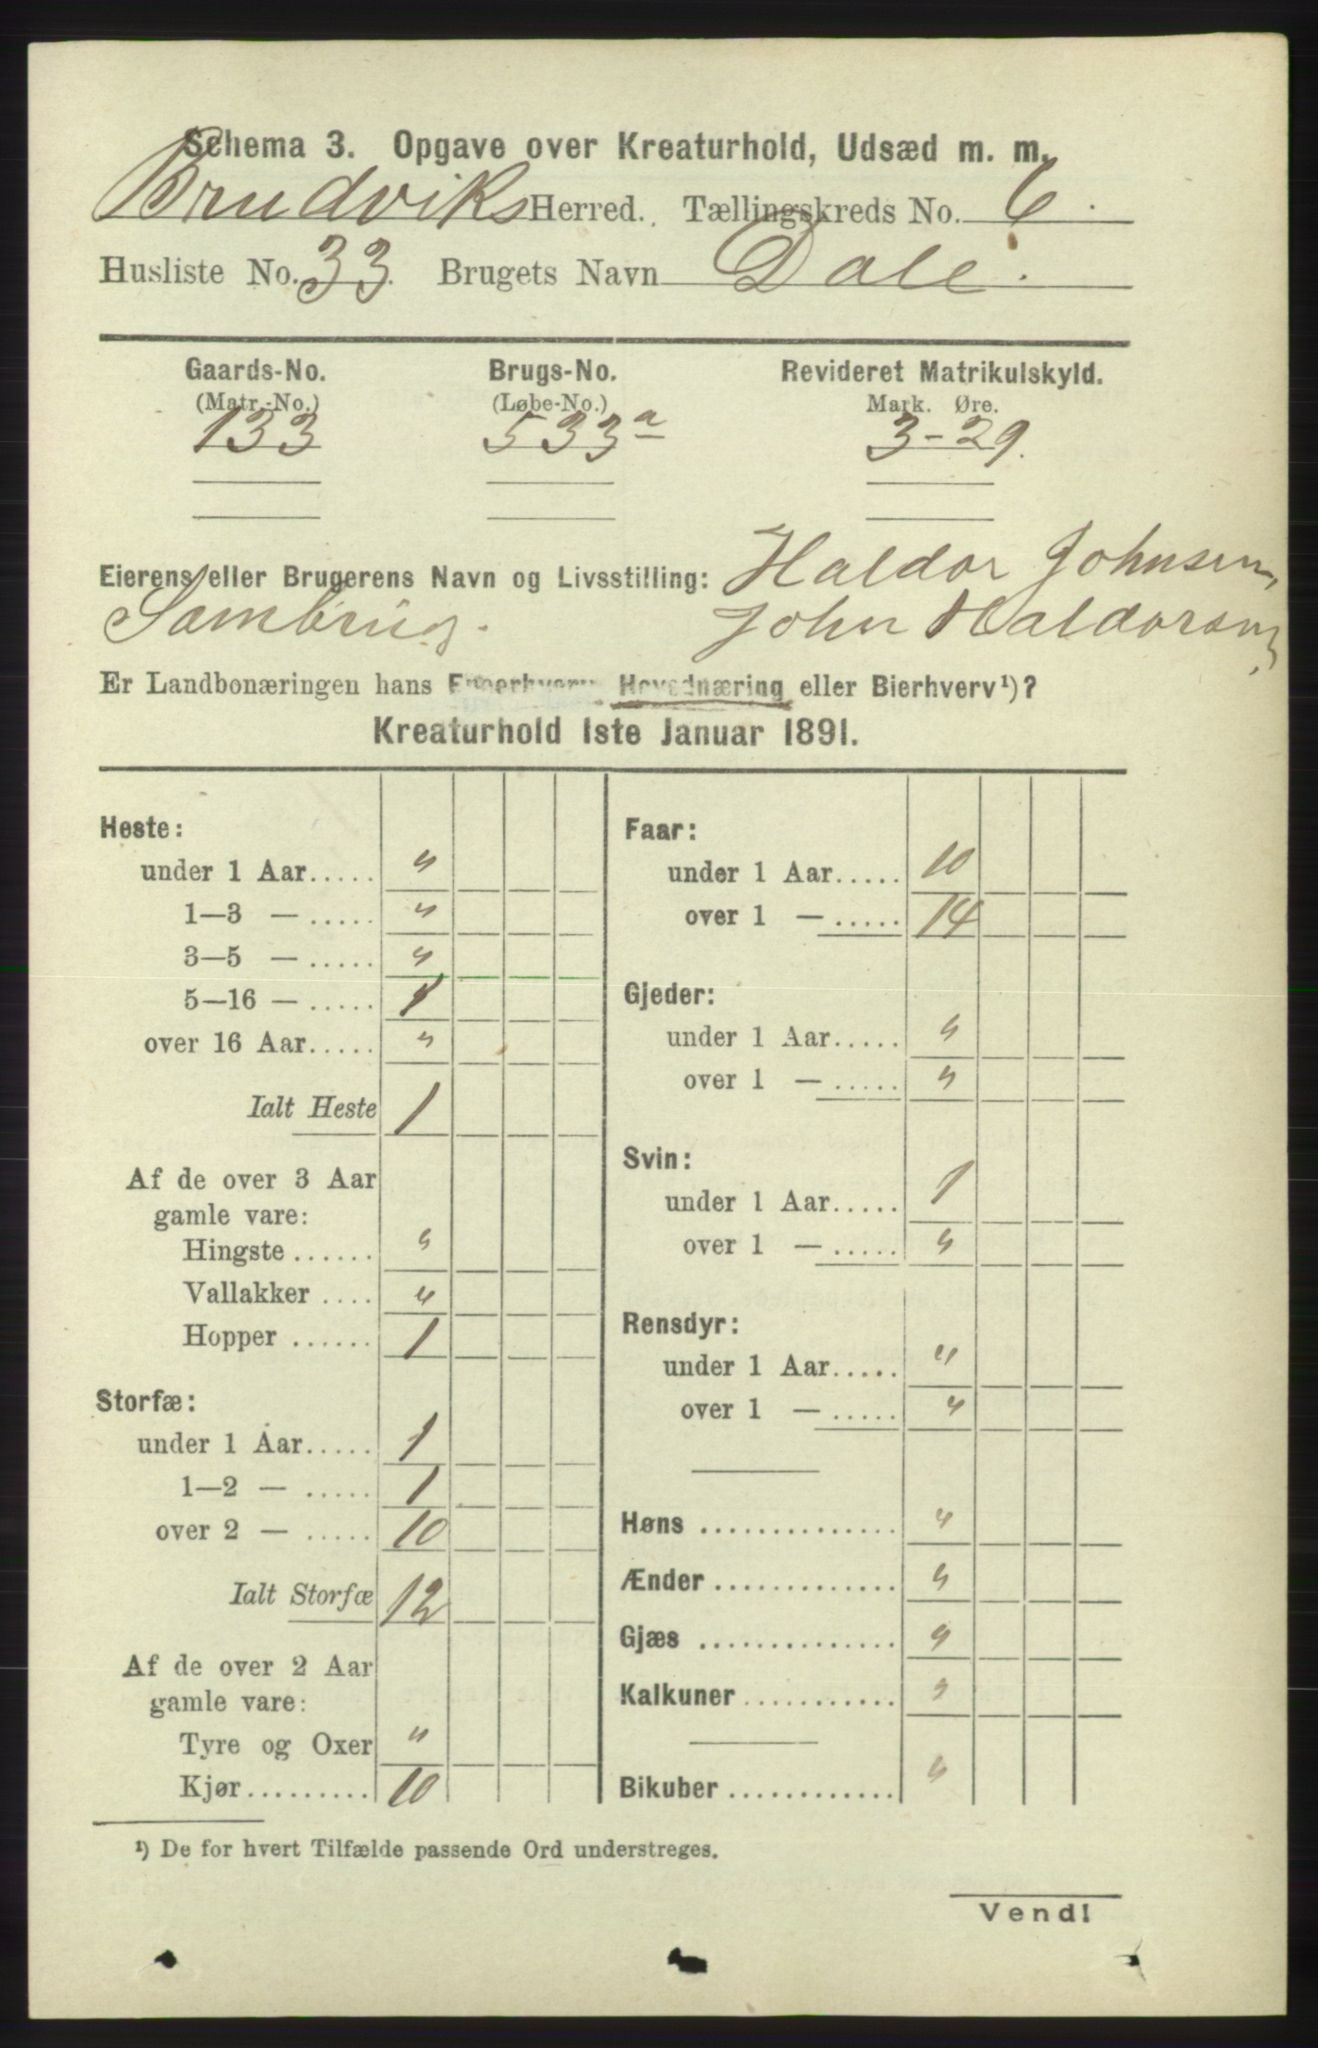 Schema 3. Opgave over Kreaturhold, Udsæd m. m.
Brudviks Herred. Tællingskreds No. 6.
Husliste No. 33. Brugets Navn Dale.
Gaards-No. Brugs-No. Revideret Matrikulskyld.
(Matr.-No.) (Løbe-No.) Mark. Øre.
133 533a 3-29.
Haldor Johnsen,
Eierens eller Brugerens Navn og Livsstilling:
Sambrug. John Haldorsen,
Er Landbonæringen hans Eneerhverv, Hovednæring eller Bierhverv¹)?
Kreaturhold 1ste Januar 1891.
Heste:
under 1 Aar..... "
1—3 — ..... "
3—5 — ..... "
5—16 — ..... 1
over 16 Aar..... "
Ialt Heste 1
Af de over 3 Aar
gamle vare:
Hingste ...... "
Vallakker .... "
Hopper ...... 1
Storfæ:
under 1 Aar..... 1
1—2 — ..... 1
over 2 — ..... 10
Ialt Storfæ 12
Af de over 2 Aar
gamle vare:
Tyre og Oxer "
Kjør......... 10
Faar:
under 1 Aar..... 10
over 1 — ..... 14
Gjeder:
under 1 Aar..... "
over 1 — ..... "
Svin:
under 1 Aar..... 1
over 1 — ..... "
Rensdyr:
under 1 Aar..... "
over 1 — ..... "
Høns .............. "
Ænder ............. "
Gjæs .............. "
Kalkuner ........... "
Bikuber ............ "
¹) De for hvert Tilfælde passende Ord understreges.
Vend!